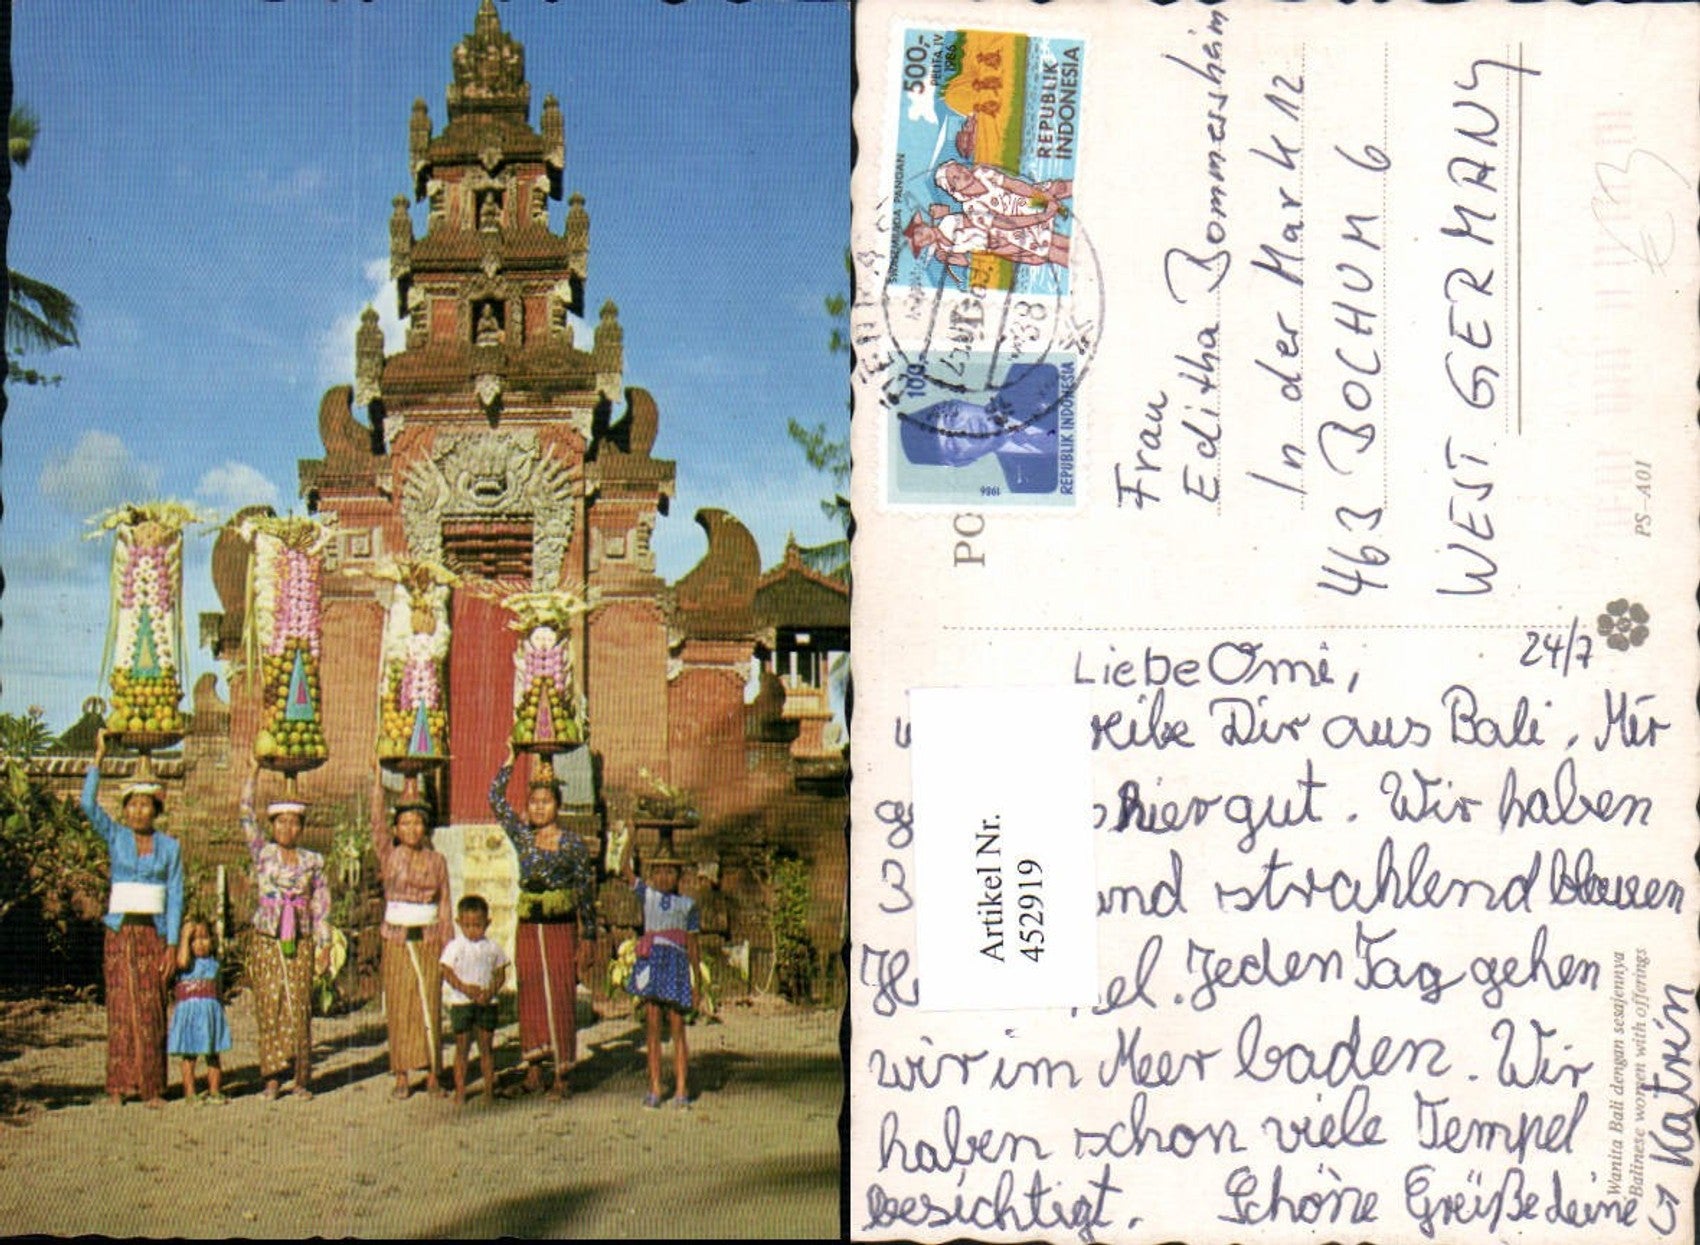 500,-
PELITA IV
1986
REPUBLIK
INDONESIA
SWASEMBADA PANGAN
100,-
REPUBLIK INDONESIA
1986
PO
Frau
Editha Bommersheim
In der Mark 12
463 BOCHUM 6
WEST GERMANY
PS-A01
Artikel Nr.
452919
24/7
Liebe Omi,
Dir aus Bali. Mir
hier gut. Wir haben
und strahlend blauen
Jeden Tag gehen
wir im Meer baden. Wir
haben schon viele Tempel
besichtigt. Schöne Grüße deine
→ Katrin
Wanita Bali dengan sesajennya
Balinese women with offerings